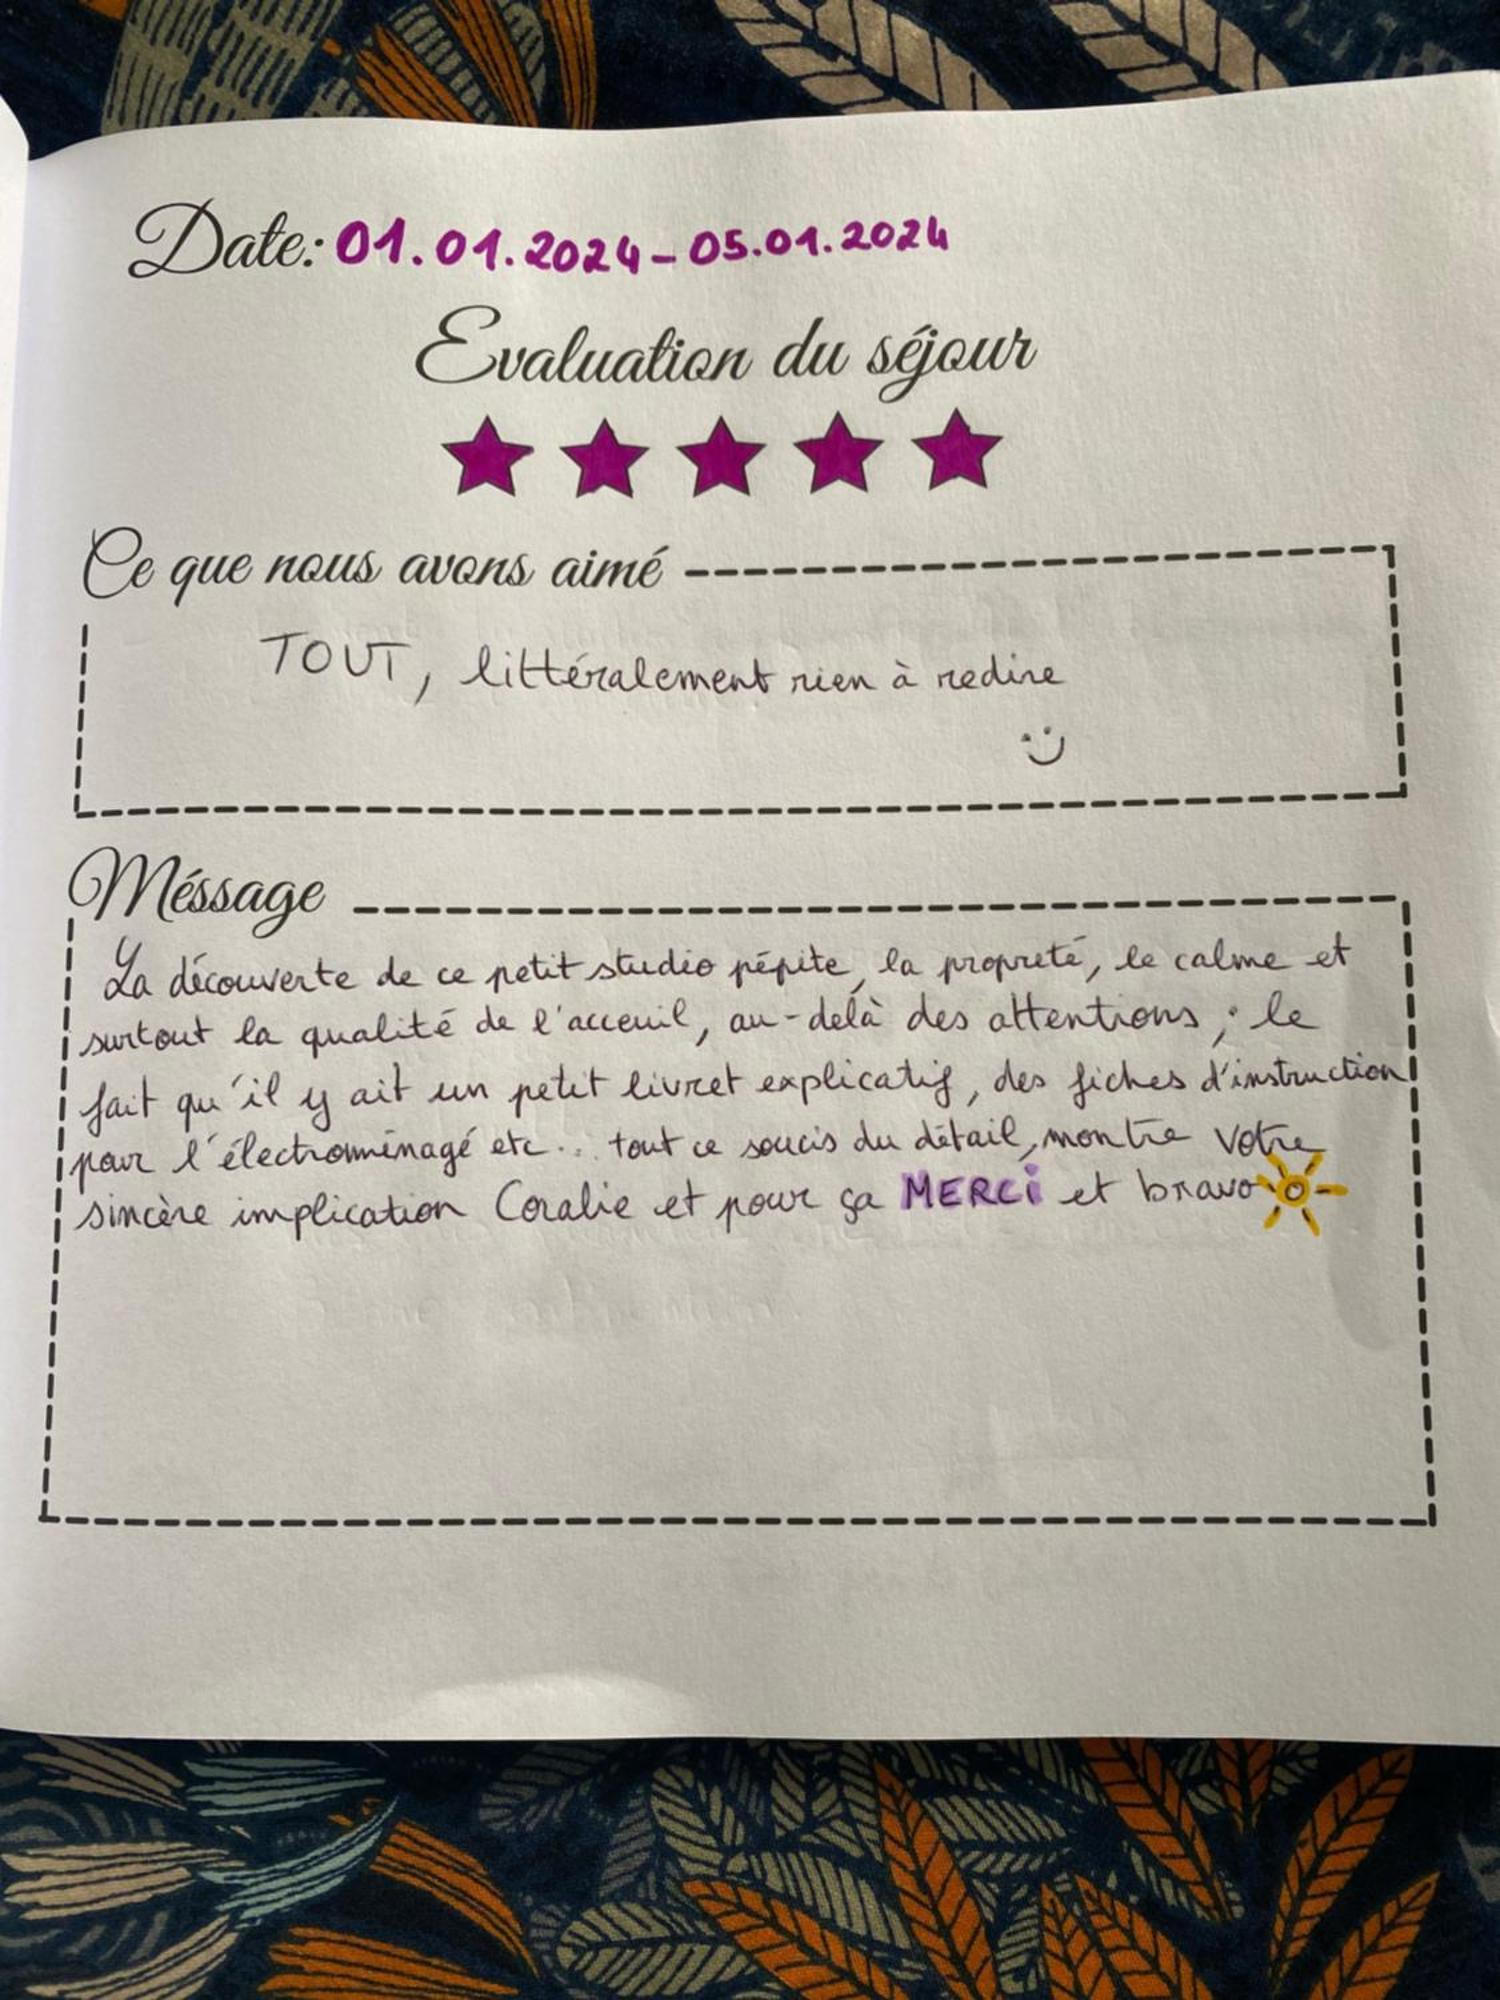 Date: 01.01.2024 - 05.01.2024
Evaluation du séjour
Ce que nous avons aimé
TOUT, littéralement rien à redire
Méssage
La découverte de ce petit studio pépite, la propreté, le calme et
surtout la qualité de l'acceuil, au-delà des attentions ; le
fait qu'il y ait un petit livret explicatif, des fiches d'instruction
pour l'électroménagé etc... tout ce soucis du détail, montre votre
sincère implication Coralie et pour ça MERCi et bravo